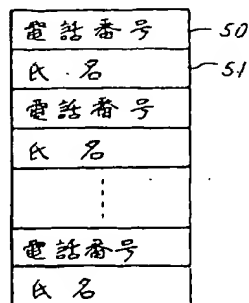 電話番号 50
氏名 51
電話番号
氏名
電話番号
氏名